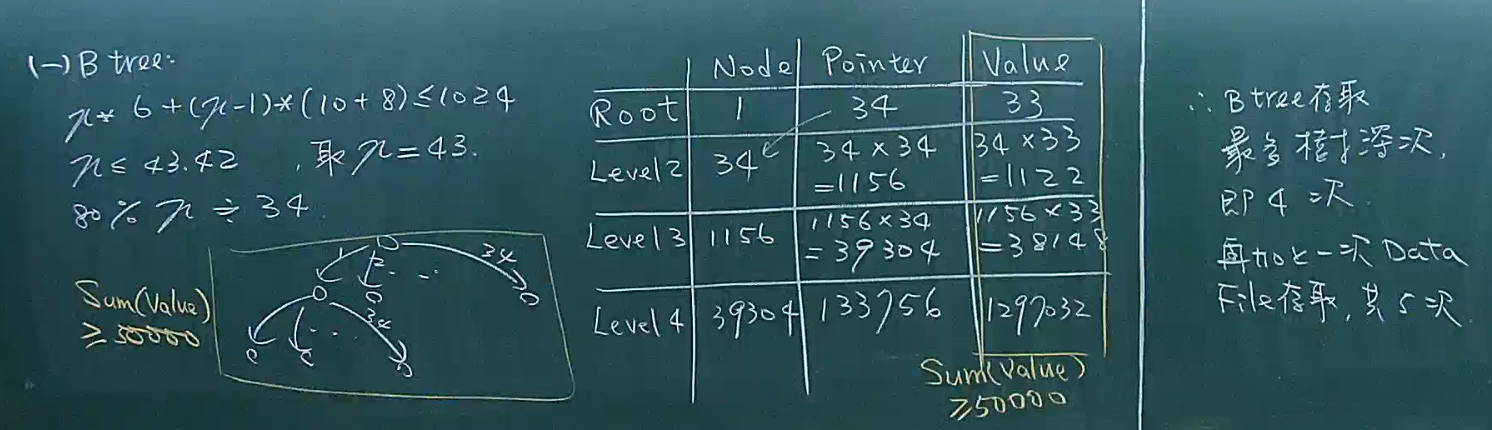 (一) B tree:
n * 6 + (n-1) * (10 + 8) ≤ 1024
n ≤ 43.42 , 取 n = 43.
80% n ≑ 34
Sum(Value)
≥ 50000
1 2 34
34
Node Pointer Value
Root 1 34 33
Level 2 34 34 × 34 34 × 33
=1156 =1122
Level 3 1156 1156 × 34 1156 × 33
= 39304 = 38148
Level 4 39304 133756 1297032
Sum(Value)
≥ 50000
∴ B tree 存取
最多樹深次,
即 4 次
再加上一次 Data
File 存取, 共 5 次